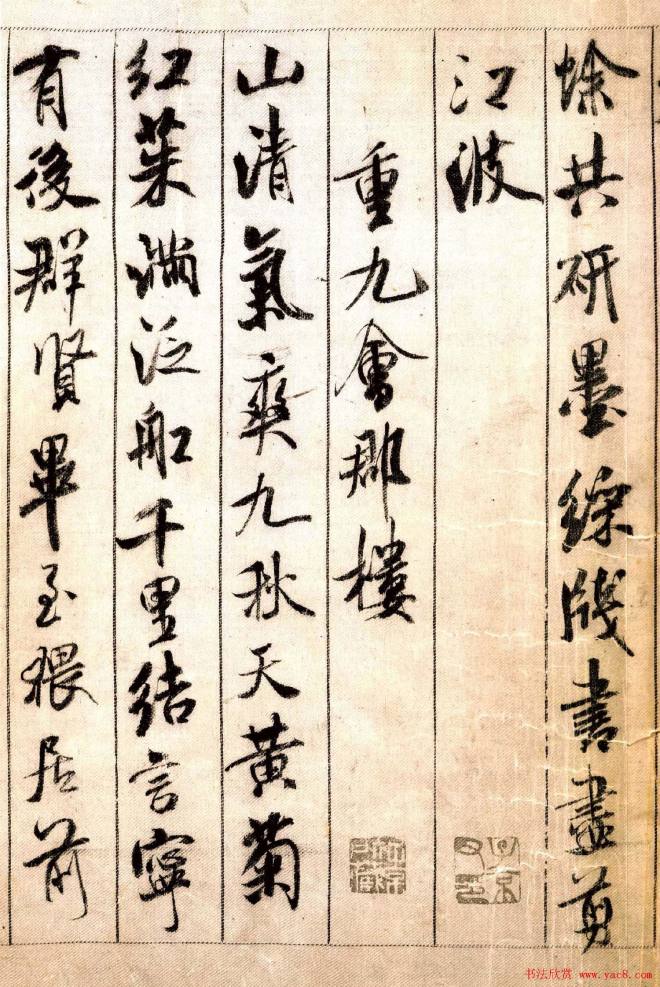 蜍共研墨綵牋書盡剪
江波
重九會郡樓
山清氣爽九秋天黄菊
紅茱滿泛船千里結言寧
有後群賢畢至猥居前
书法欣赏 www.yac8.com